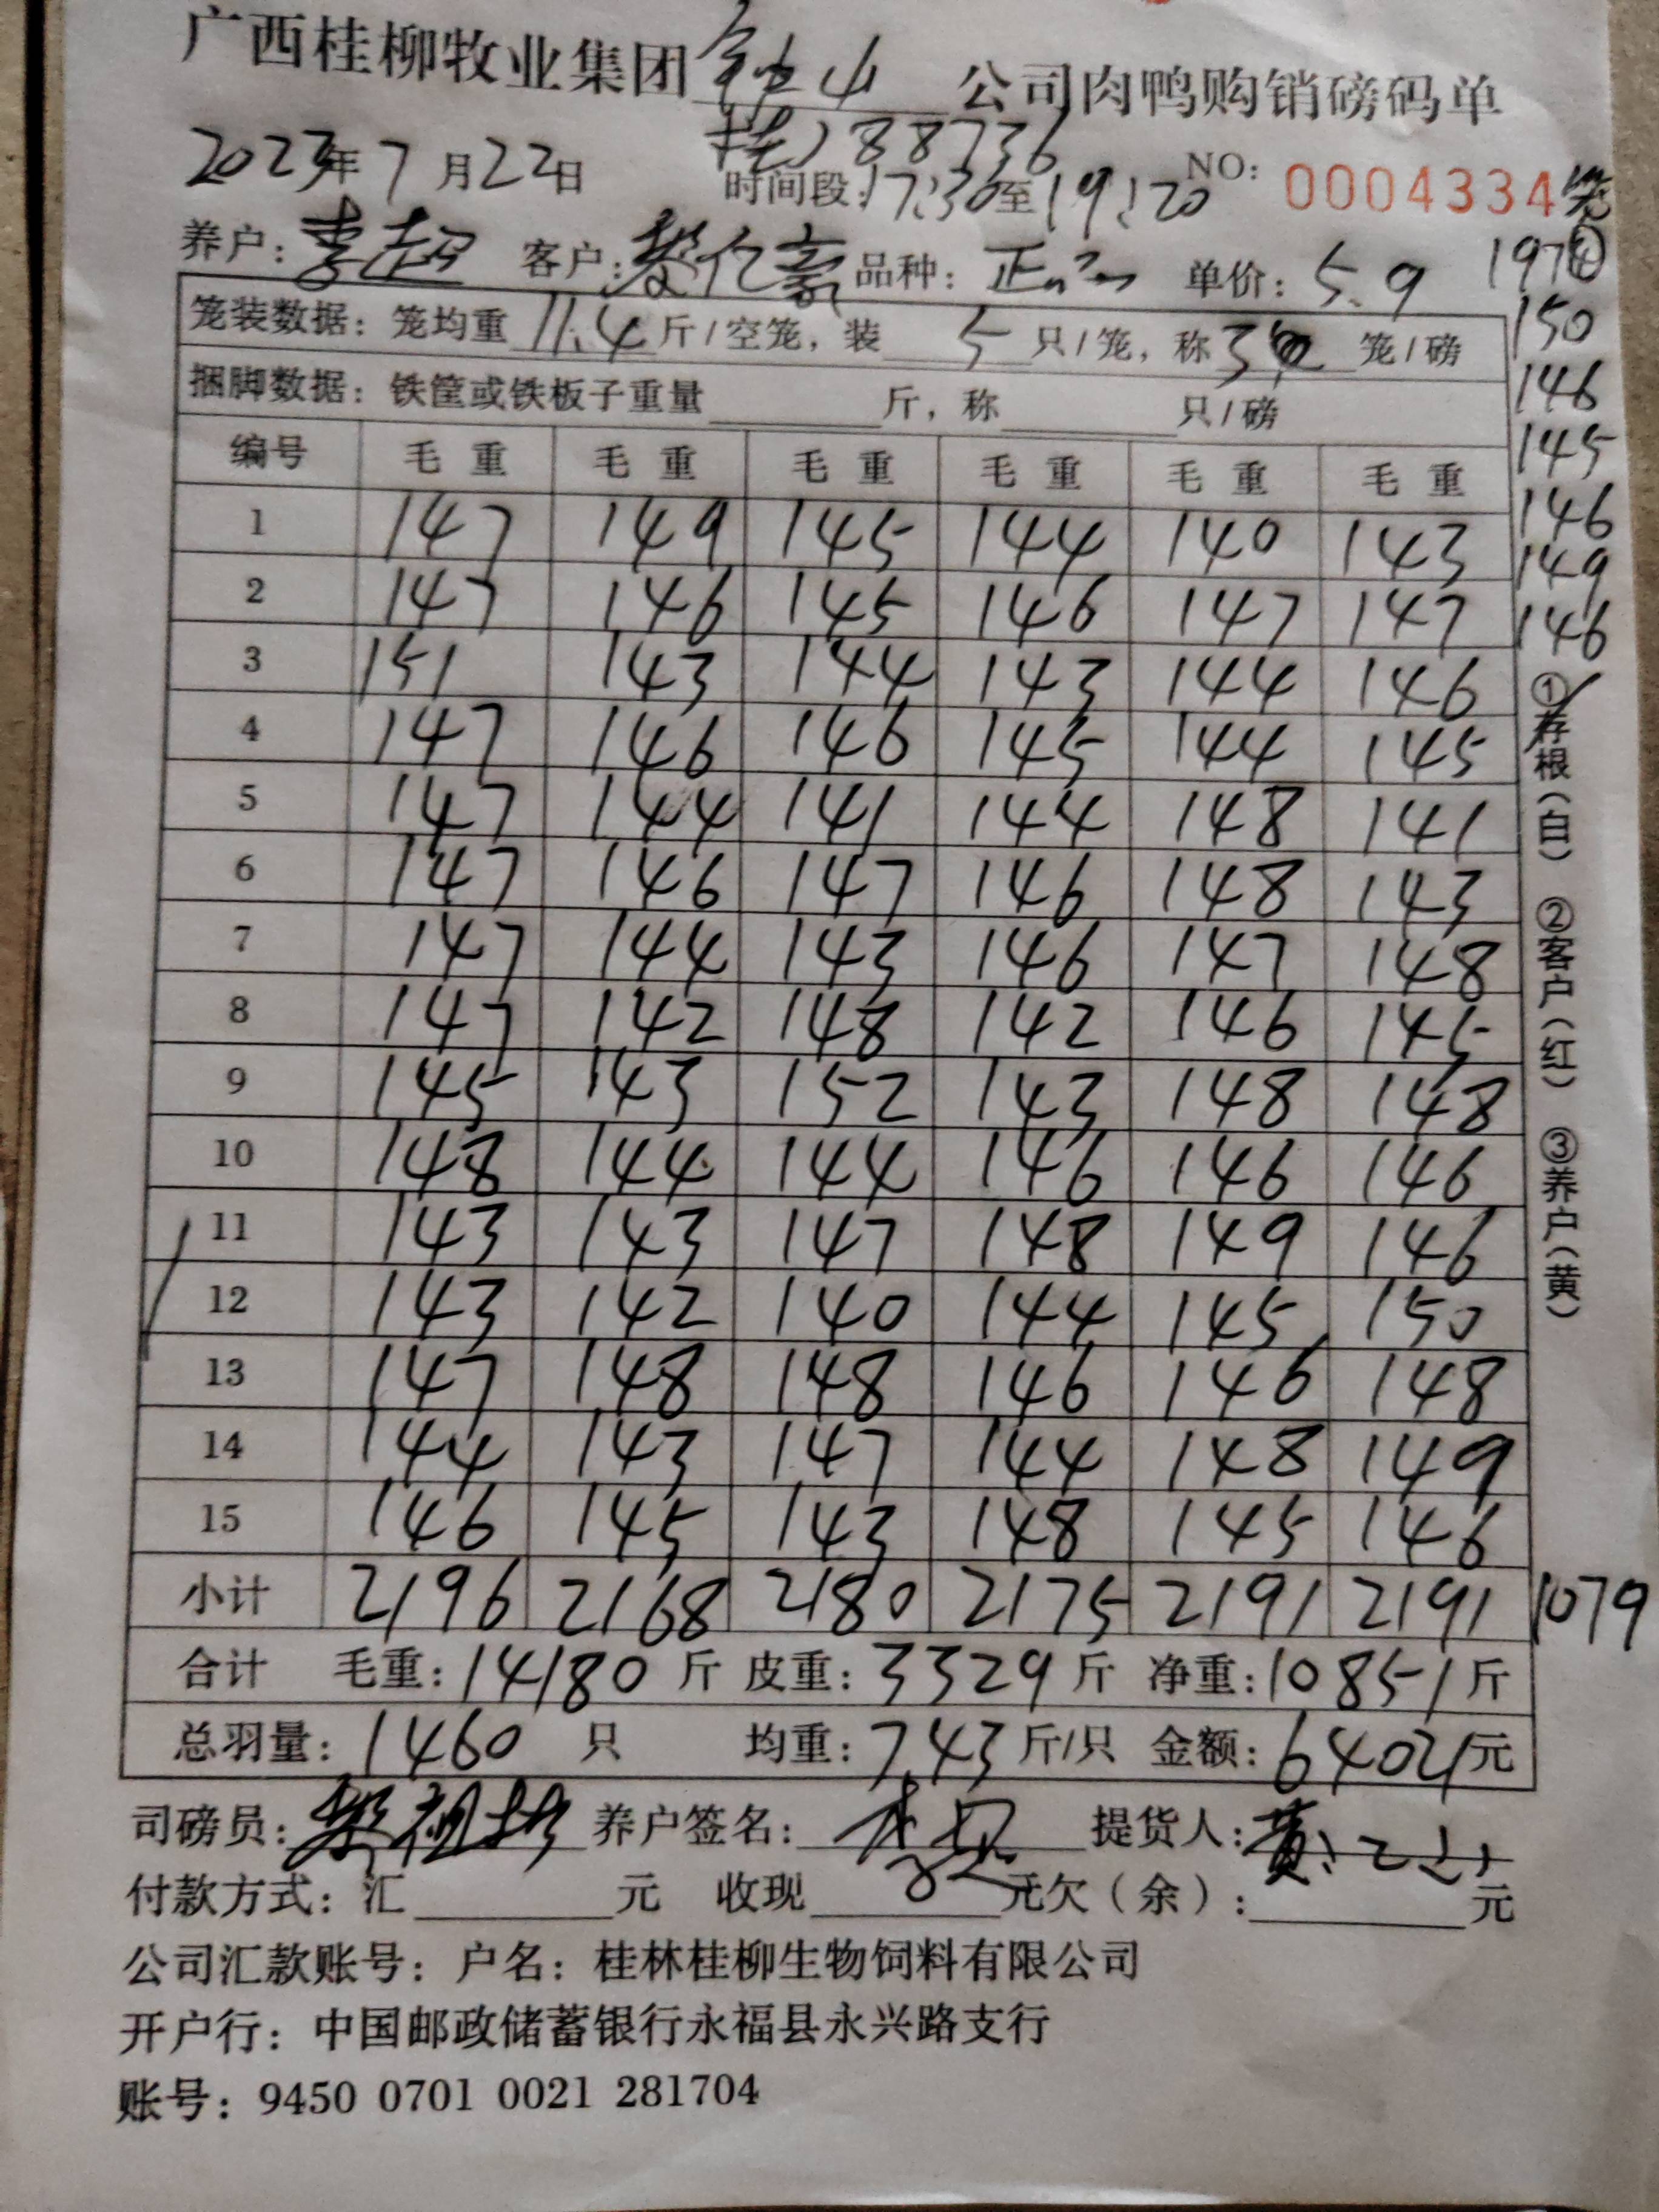 广西桂柳牧业集团钟山公司肉鸭购销磅码单
桂J88736
2023年7月22日 时间段:17:30至19:20 NO: 0004334
养户:李超 客户:黎亿豪 品种: 单价:5.9 197④
笼装数据:笼均重11.4斤/空笼,装5只/笼,称3笼/磅 150
捆脚数据:铁筐或铁板子重量 斤,称 只/磅 146
编号 毛重 毛重 毛重 毛重 毛重 毛重 145
1 147 149 145 144 140 143 146
2 147 146 145 146 147 147 149
146
3 151 143 144 143 144 146
4 147 146 146 145 144 145
5 147 144 141 144 148 141
6 147 146 147 146 148 143
7 147 144 143 146 147 148
8 147 142 148 142 146 145
9 145 143 152 143 148 148
10 148 144 144 146 146 146
11 143 143 147 148 149 146
12 143 142 140 144 145 150
13 147 148 148 146 146 148
14 144 143 147 144 148 149
15 146 145 143 148 145 146
小计 2196 2168 2180 2175 2191 2191 1079
合计 毛重:14180斤 皮重:3329斤 净重:10851斤
总羽量:1460只 均重:7.43斤/只 金额:64021元
司磅员: 养户签名: 提货人:黄
付款方式:汇 元 收现 元欠(余): 元
公司汇款账号:户名:桂林桂柳生物饲料有限公司
开户行:中国邮政储蓄银行永福县永兴路支行
账号:9450 0701 0021 281704
①存根(白) ②客户(红) ③养户(黄)